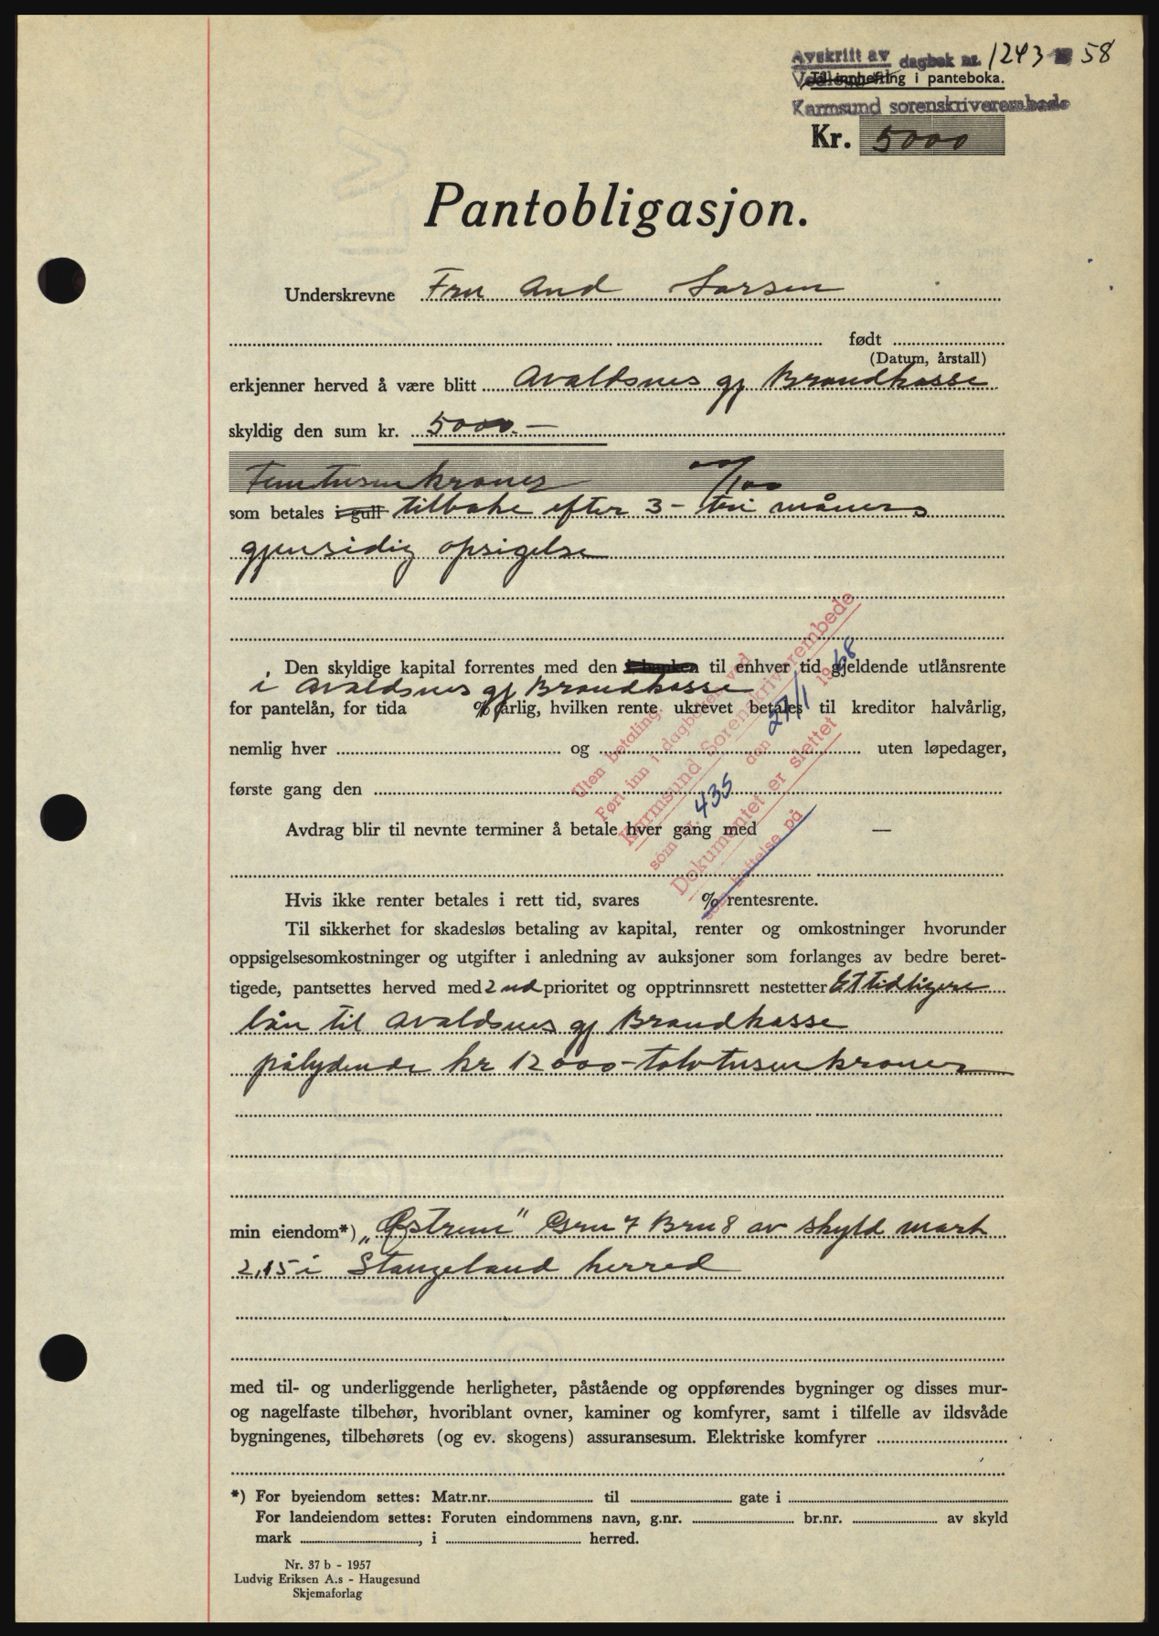 Avskrift av dagbok nr. 1243 1958
Vedlegg til Til innhefting i panteboka.
Karmsund sorenskriverembede
Kr. 5000
Pantobligasjon.
Underskrevne Fru And Larsen
født
(Datum, årstall)
erkjenner herved å være blitt Avaldsnes gj Brandkasse
skyldig den sum kr. 5000.—
Femtusenkroner 00/100
som betales i gull tilbake efter 3- tre måners
gjensidig opsigelse
Den skyldige kapital forrentes med den i banken til enhver tid gjeldende utlånsrente
i Avaldsnes gj Brandkasse
for pantelån, for tida % årlig, hvilken rente ukrevet betales til kreditor halvårlig,
nemlig hver og uten løpedager,
første gang den
Avdrag blir til nevnte terminer å betale hver gang med —
Uten betaling.
Ført inn i dagboken ved
Karmsund Sorenskriverembede
som nr. 435 den 27/1 1968
Dokumentet er slettet
som heftelse på
Hvis ikke renter betales i rett tid, svares % rentesrente.
Til sikkerhet for skadesløs betaling av kapital, renter og omkostninger hvorunder
oppsigelsesomkostninger og utgifter i anledning av auksjoner som forlanges av bedre beret-
tigede, pantsettes herved med 2nd prioritet og opptrinnsrett nestetter Et tidligere
lån til Avaldsnes gj Brandkasse
pålydende kr 12000-tolvtusenkroner
min eiendom*) „Østrem" Gru 7 Bru 8 av skyld mark
2,15 i Stangeland herred
med til- og underliggende herligheter, påstående og oppførendes bygninger og disses mur-
og nagelfaste tilbehør, hvoriblant ovner, kaminer og komfyrer, samt i tilfelle av ildsvåde
bygningenes, tilbehørets (og ev. skogens) assuransesum. Elektriske komfyrer
*) For byeiendom settes: Matr.nr. til gate i
For landeiendom settes: Foruten eindommens navn, g.nr. br.nr. av skyld
mark , i herred.
Nr. 37 b - 1957
Ludvig Eriksen A.s - Haugesund
Skjemaforlag